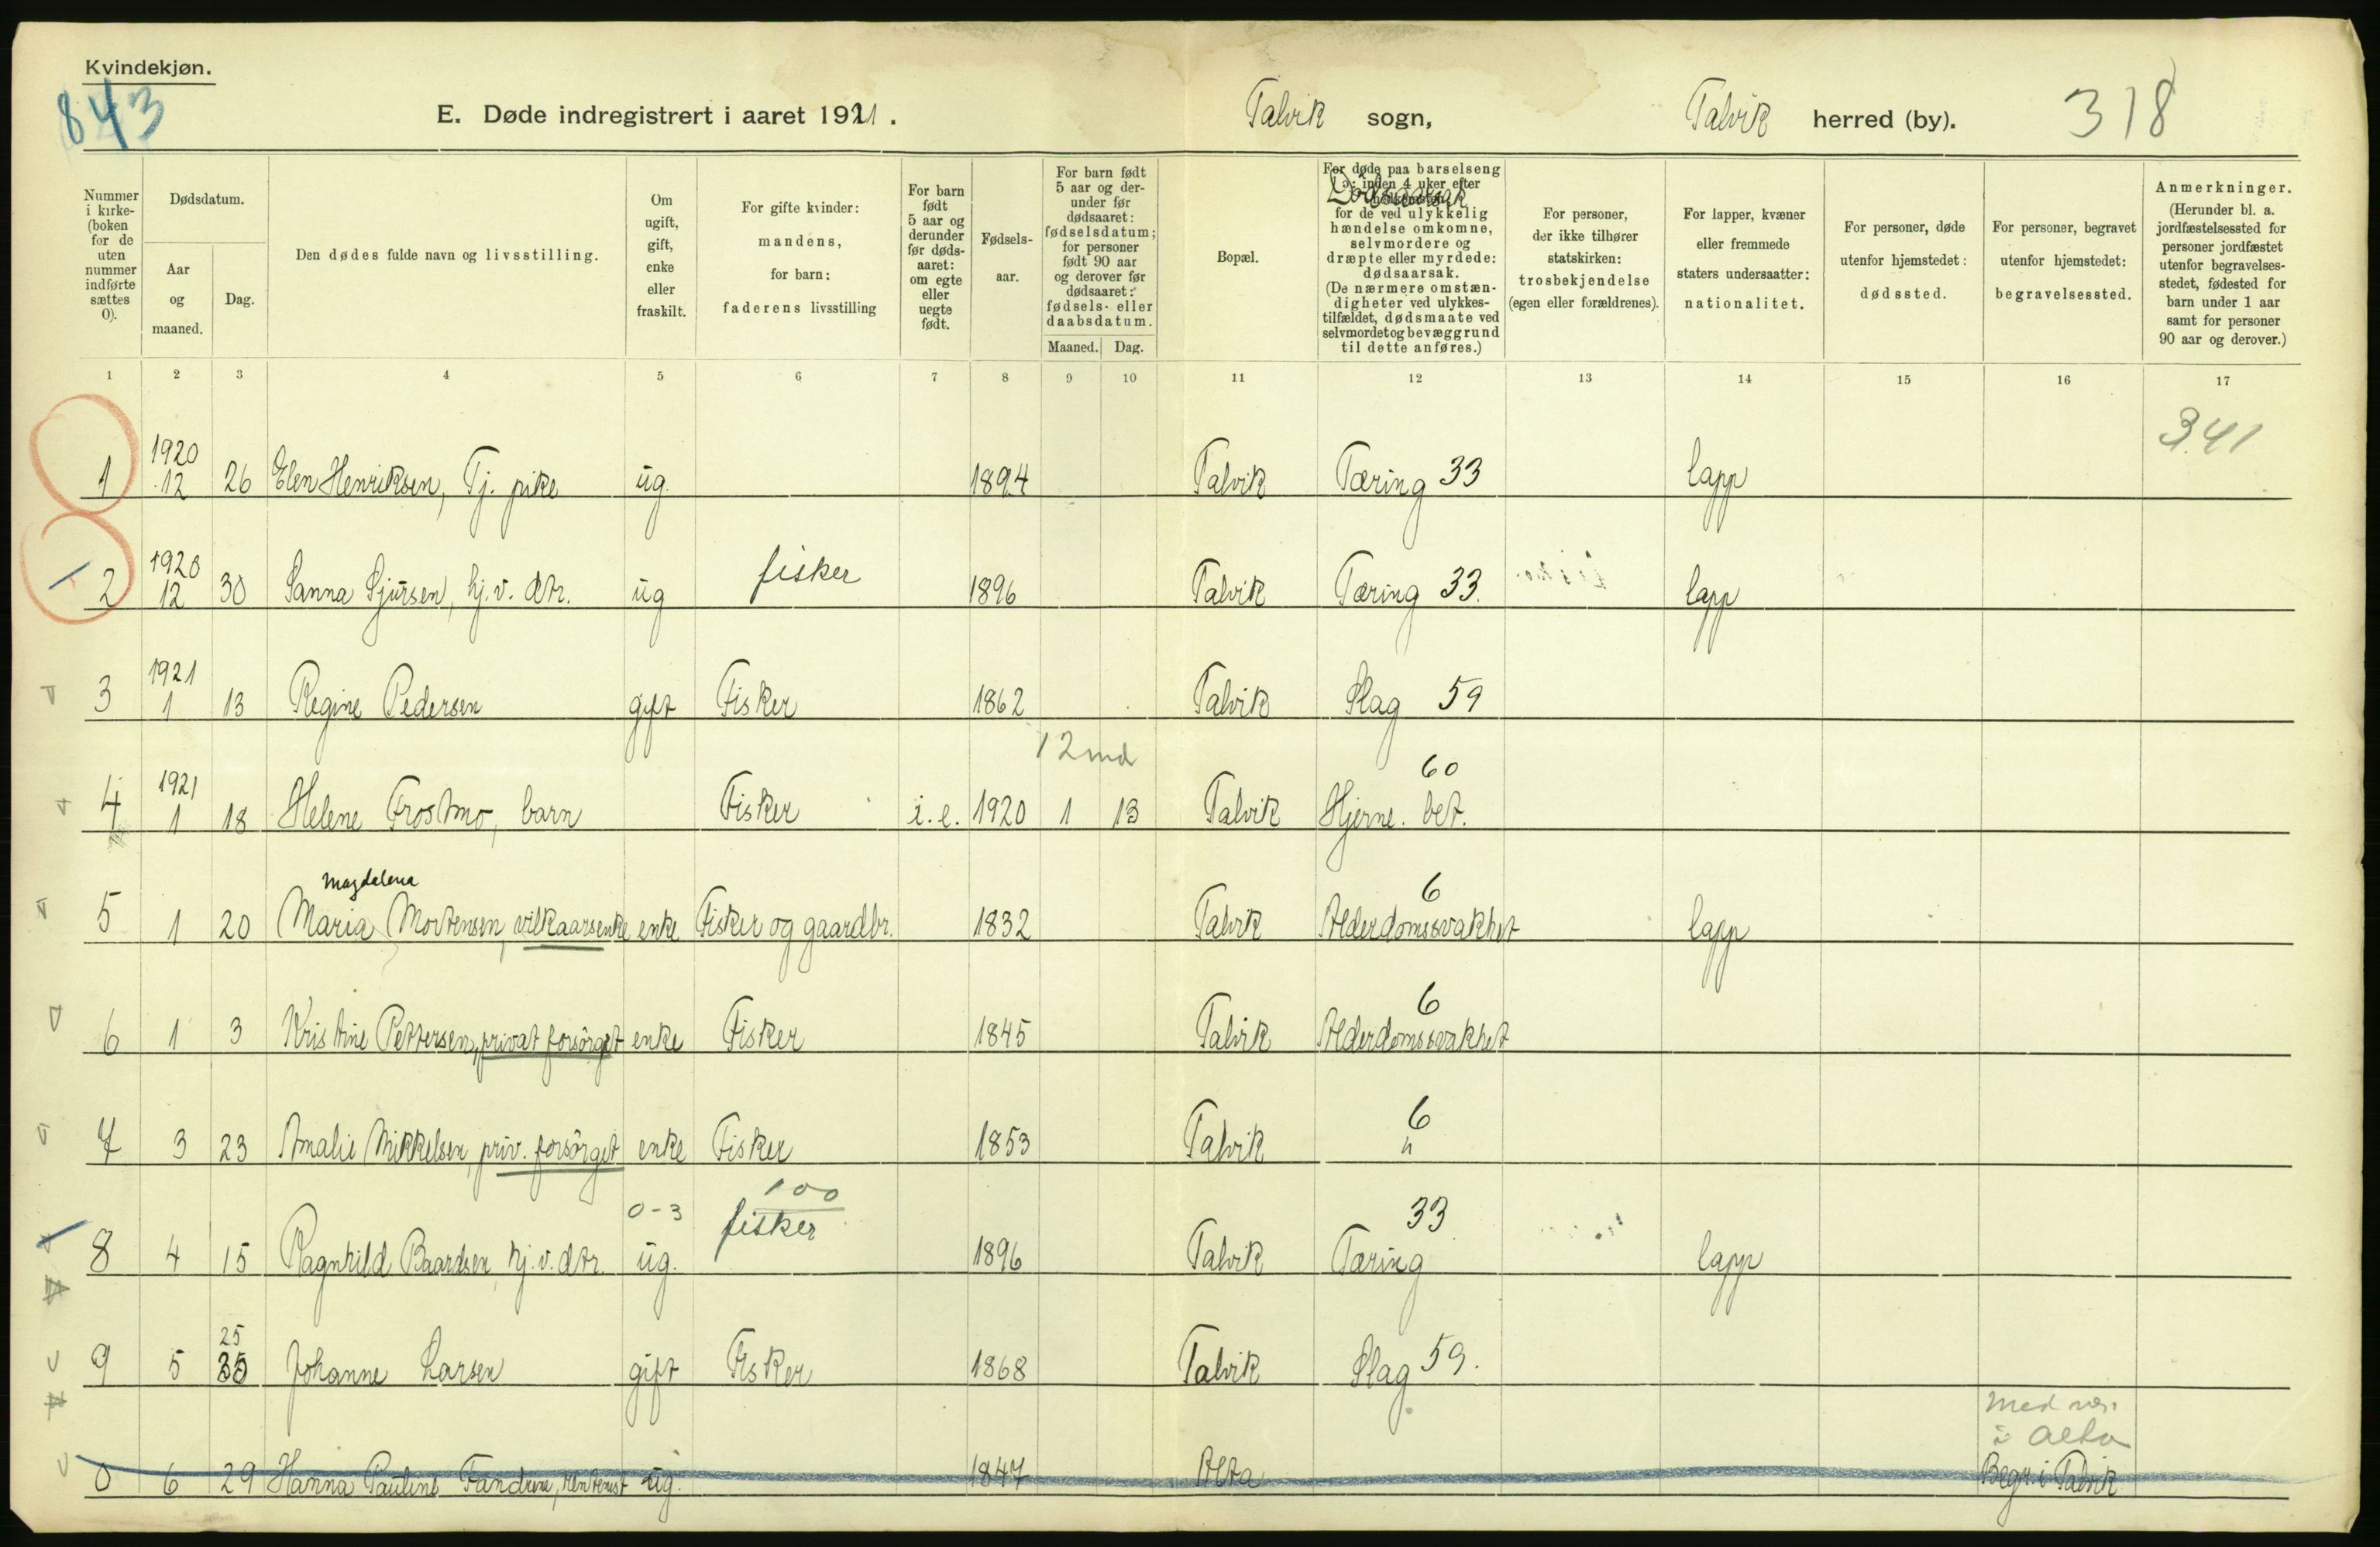 Kvindekjøn.
843
E. Døde indregistrert i aaret 1921.
Talvik sogn,
Talvik herred (by).
318
Nummer i kirke- (boken for de uten nummer indførte sættes 0).
Dødsdatum.
Aar og maaned.
Dag.
Den dødes fulde navn og livsstilling.
Om ugift, gift, enke eller fraskilt.
For gifte kvinder: mandens, for barn: faderens livsstilling
For barn født 5 aar og derunder før døds- aaret: om egte eller uegte født.
Fødsels- aar.
For barn født 5 aar og der- under før dødsaaret: fødselsdatum; for personer født 90 aar og derover før dødsaaret: fødsels- eller daabsdatum.
Maaned. Dag.
Bopæl.
For døde paa barselseng (ɔ: inden 4 uker efter
Dödsaarsak
for de ved ulykkelig hændelse omkomne, selvmordere og dræpte eller myrdede: dødsaarsak. (De nærmere omstæn- digheter ved ulykkes- tilfældet, dødsmaate ved selvmordet og bevæggrund til dette anføres.)
For personer, der ikke tilhører statskirken: trosbekjendelse (egen eller forældrenes).
For lapper, kvæner eller fremmede staters undersaatter: nationalitet.
For personer, døde utenfor hjemstedet: dødssted.
For personer, begravet utenfor hjemstedet: begravelsessted.
Anmerkninger. (Herunder bl. a. jordfæstelsessted for personer jordfæstet utenfor begravelses- stedet, fødested for barn under 1 aar samt for personer 90 aar og derover.)
1 2 3 4 5 6 7 8 9 10 11 12 13 14 15 16 17
341
1 1920 12 26 Elen Henriksen, Tj. pike ug. 1894 Talvik Tæring 33 lapp
2 1920 12 30 Sanna Sjursen, hj.v. dtr. ug fisker 1896 Talvik Tæring 33. lapp
3 1921 1 13 Regine Pedersen gift Fisker 1862 Talvik Slag 59
12 md
4 1921 1 18 Helene Frostmo, barn Fisker i.e. 1920 1 13 Talvik Hjerne. bet. 60
Magdalena
5 1 20 Maria Mortensen, vilkaarsenke enke Fisker og gaardbr. 1832 Talvik Alderdomssvakhet 6 lapp
6 1 3 Kristine Pettersen, privat forsörget enke Fisker 1845 Talvik Alderdomssvakhet 6
7 3 23 Amalie Mikkelsen, priv. forsörget enke Fisker 1853 Talvik " 6
0-3 100
8 4 15 Ragnhild Baardsen hj.v.dtr. ug. fisker 1896 Talvik Tæring 33 lapp
25
9 5 35 Johanne Larsen gift Fisker 1868 Talvik Slag 59.
i Alta
0 6 29 Hanna Pauline Fandrem, rentenist ug. 1847 Alta Begr. i Talvik